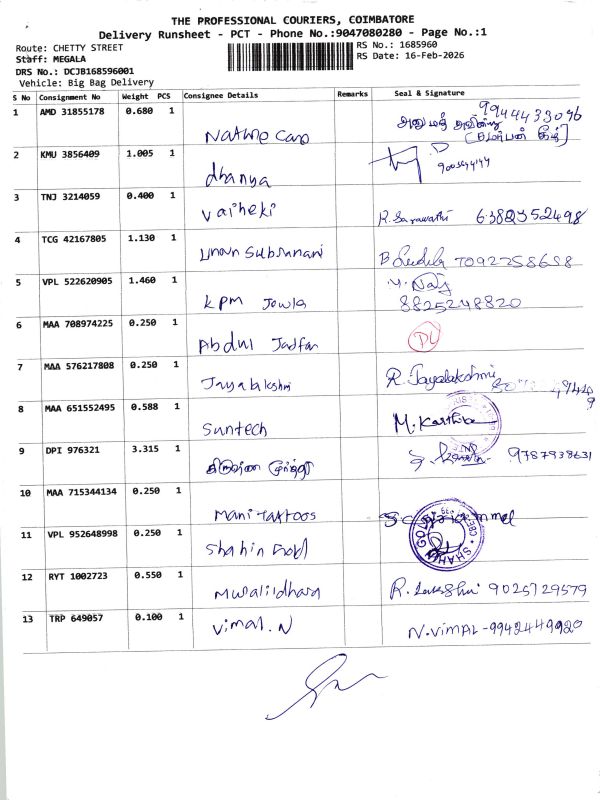 THE PROFESSIONAL COURIERS, COIMBATORE
Delivery Runsheet - PCT - Phone No.:9047080280 - Page No.:1
Route: CHETTY STREET
RS No.: 1685960
Staff: MEGALA
RS Date: 16-Feb-2026
DRS No.: DCJB168596001
Vehicle: Big Bag Delivery
S No Consignment No Weight PCS Consignee Details Remarks Seal & Signature
1 AMD 31855178 0.680 1 9944433096
2 KMU 3856409 1.005 1 dhanya
3 TNJ 3214059 0.400 1 vaiheki R. Sarawathi 6382352498
4 TCG 42167805 1.130 1 7092258658
5 VPL 522620905 1.460 1 KPM Jowla 8825248820
6 MAA 708974225 0.250 1 Abdul Jaffar DL
7 MAA 576217808 0.250 1 Jayalakshmi R. Jayalakshmi
8 MAA 651552495 0.588 1 Suntech M. Karthika
9 DPI 976321 3.315 1 9787938631
10 MAA 715344134 0.250 1 Mani Tattoos
11 VPL 952648998 0.250 1 Shahin Gold
SHAHIN GOLD
12 RYT 1002723 0.550 1 Muralidhara R. 9025729579
13 TRP 649057 0.100 1 Vimal.N N.VIMAL-9942449920